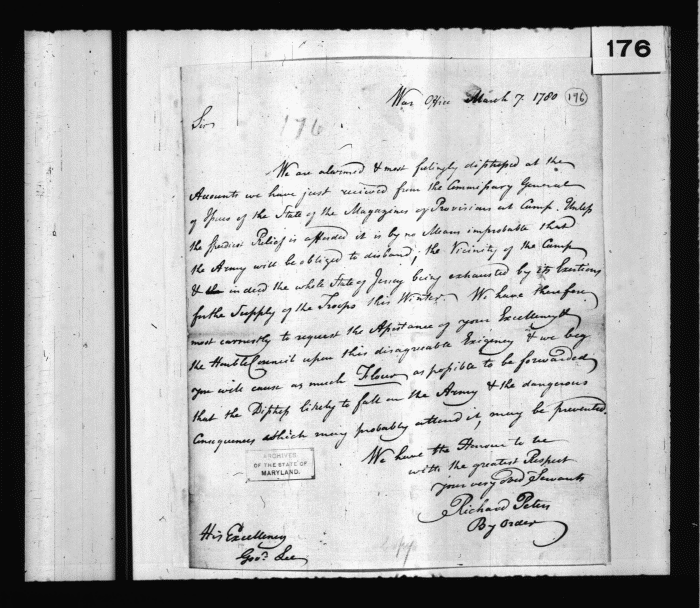 176
War Office March 7. 1780
176
Sir
176
We are alarmed & most feelingly distressed at the
Accounts we have just received from the Commissary General
of Issues of the State of the Magazines of Provisions at Camp. Unless
the speediest Relief is afforded it is by no Means improbable that
the Army will be obliged to disband; the Vicinity of the Camp
& indeed the whole State of Jersey being exhausted by its Exertions
for the Supply of the Troops this Winter. We have therefore
most earnestly to request the Assistance of your Excellency &
the Honble Council upon this disagreable Exigency & we beg
you will cause as much Flour as possible to be forwarded
that the Distress likely to fall on the Army & the dangerous
Consequences which may probably attend it, may be prevented.
We have the Honour to be
with the greatest Respect
your very Obed Servants
Richard Peters
By order
ARCHIVES
OF THE STATE OF
MARYLAND.
His Excellency
Govr. Lee
Copy